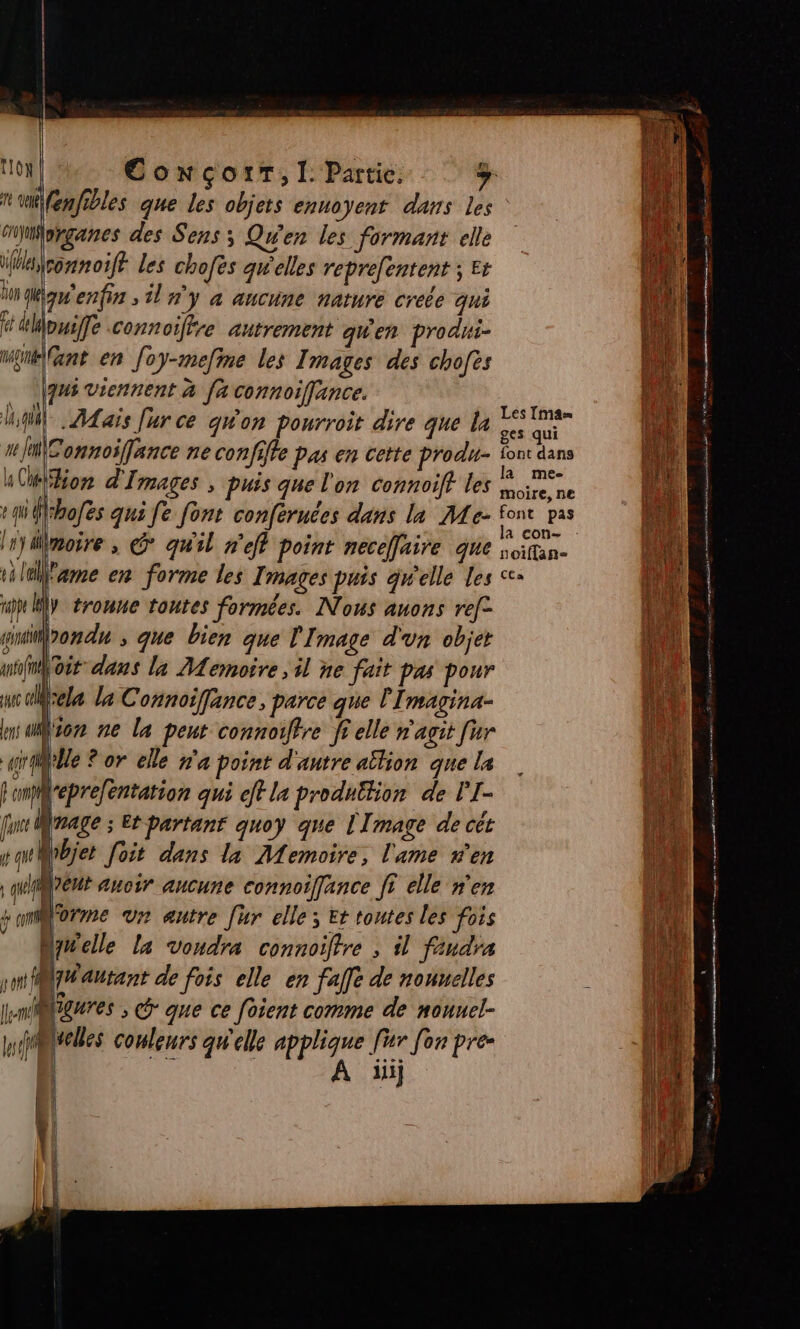 Conçoit, I. Partie. 5
sensibles que les objets enuoyent dans les
organes des Sens ; Qu'en les formant elle
connoist les choses qu'elles representent ; Et
qu'enfin , il n'y a aucune nature creée qui
puisse connoistre autrement qu'en produi-
sant en soy-mesme les Images des choses
qui viennent à sa connoissance.
Mais sur ce qu'on pourroit dire que la
Connoissance ne consiste pas en cette produ-
ction d'Images , puis que l'on connoist les
choses qui se sont conseruées dans la Me-
moire , & qu'il n'est point necessaire que
l'ame en forme les Images puis qu'elle les
y trouue toutes formées. Nous auons res-
pondu , que bien que l'Image d'vn objet
soit dans la Memoire , il ne fait pas pour
cela la Connoissance , parce que l'Imagina-
tion ne la peut connoistre si elle n'agit sur
elle ? or elle n'a point d'autre action que la
representation qui est la production de l'I-
mage ; Et partant quoy que l'Image de cét
objet soit dans la Memoire, l'ame n'en
peut auoir aucune connoissance si elle n'en
forme vn autre sur elle ; Et toutes les fois
qu'elle la voudra connoistre , il faudra
qu'autant de fois elle en fasse de nouuelles
figures , & que ce soient comme de nouuel-
les couleurs qu'elle applique sur son pre-
A iiij
Les Ima-
ges qui
sont dans
la me-
moire, ne
sont pas
la con-
noissan-
ce.